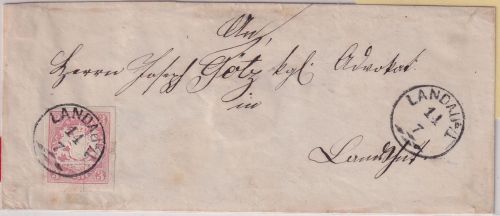 An,
Herrn Joseph Götz kgl. Advokat
in
Landshut
LANDAU a/I.
11
7
LANDAU a/I.
11
7
3